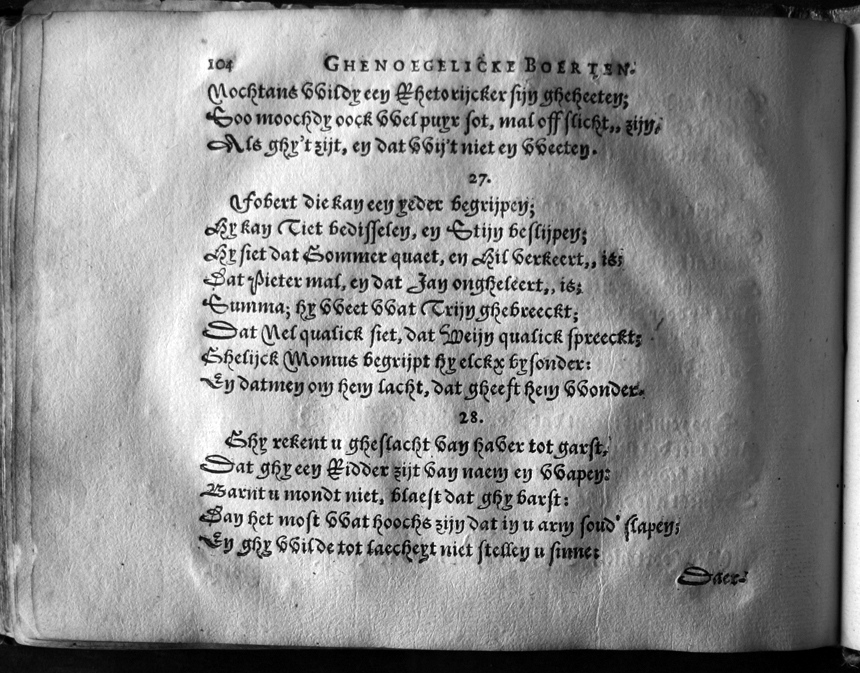 104 GHENOEGELICKE BOERTEN.
Nochtans wildy een Rhetorijcker sijn gheheeten;
Soo moochdy oock wel puyr sot, mal off slicht,, zijn,
Als ghy't zijt, en dat wij't niet en weeten.
27.
Jobert die kan een yeder begrijpen;
Hy kan Tiet bedisselen, en Stijn beslijpen;
Hy siet dat Sommer quaet, en Hil verkeert,, is;
Dat Pieter mal, en dat Jan ongheleert,, is;
Summa; hy weet wat Trijn ghebreeckt;
Dat Nel qualick siet, dat Weijn qualick spreeckt;
Ghelijck Momus begrijpt hy elckx bysonder:
En datmen om hem lacht, dat gheeft hem wonder.
28.
Ghy rekent u gheslacht van haver tot garst,
Dat ghy een Ridder zijt van naem en wapen:
Barnt u mondt niet, blaest dat ghy barst:
Dan het most wat hoochs zijn dat in u arm soud' slapen;
En ghy wilde tot laecheyt niet stellen u sinne:
Daer-